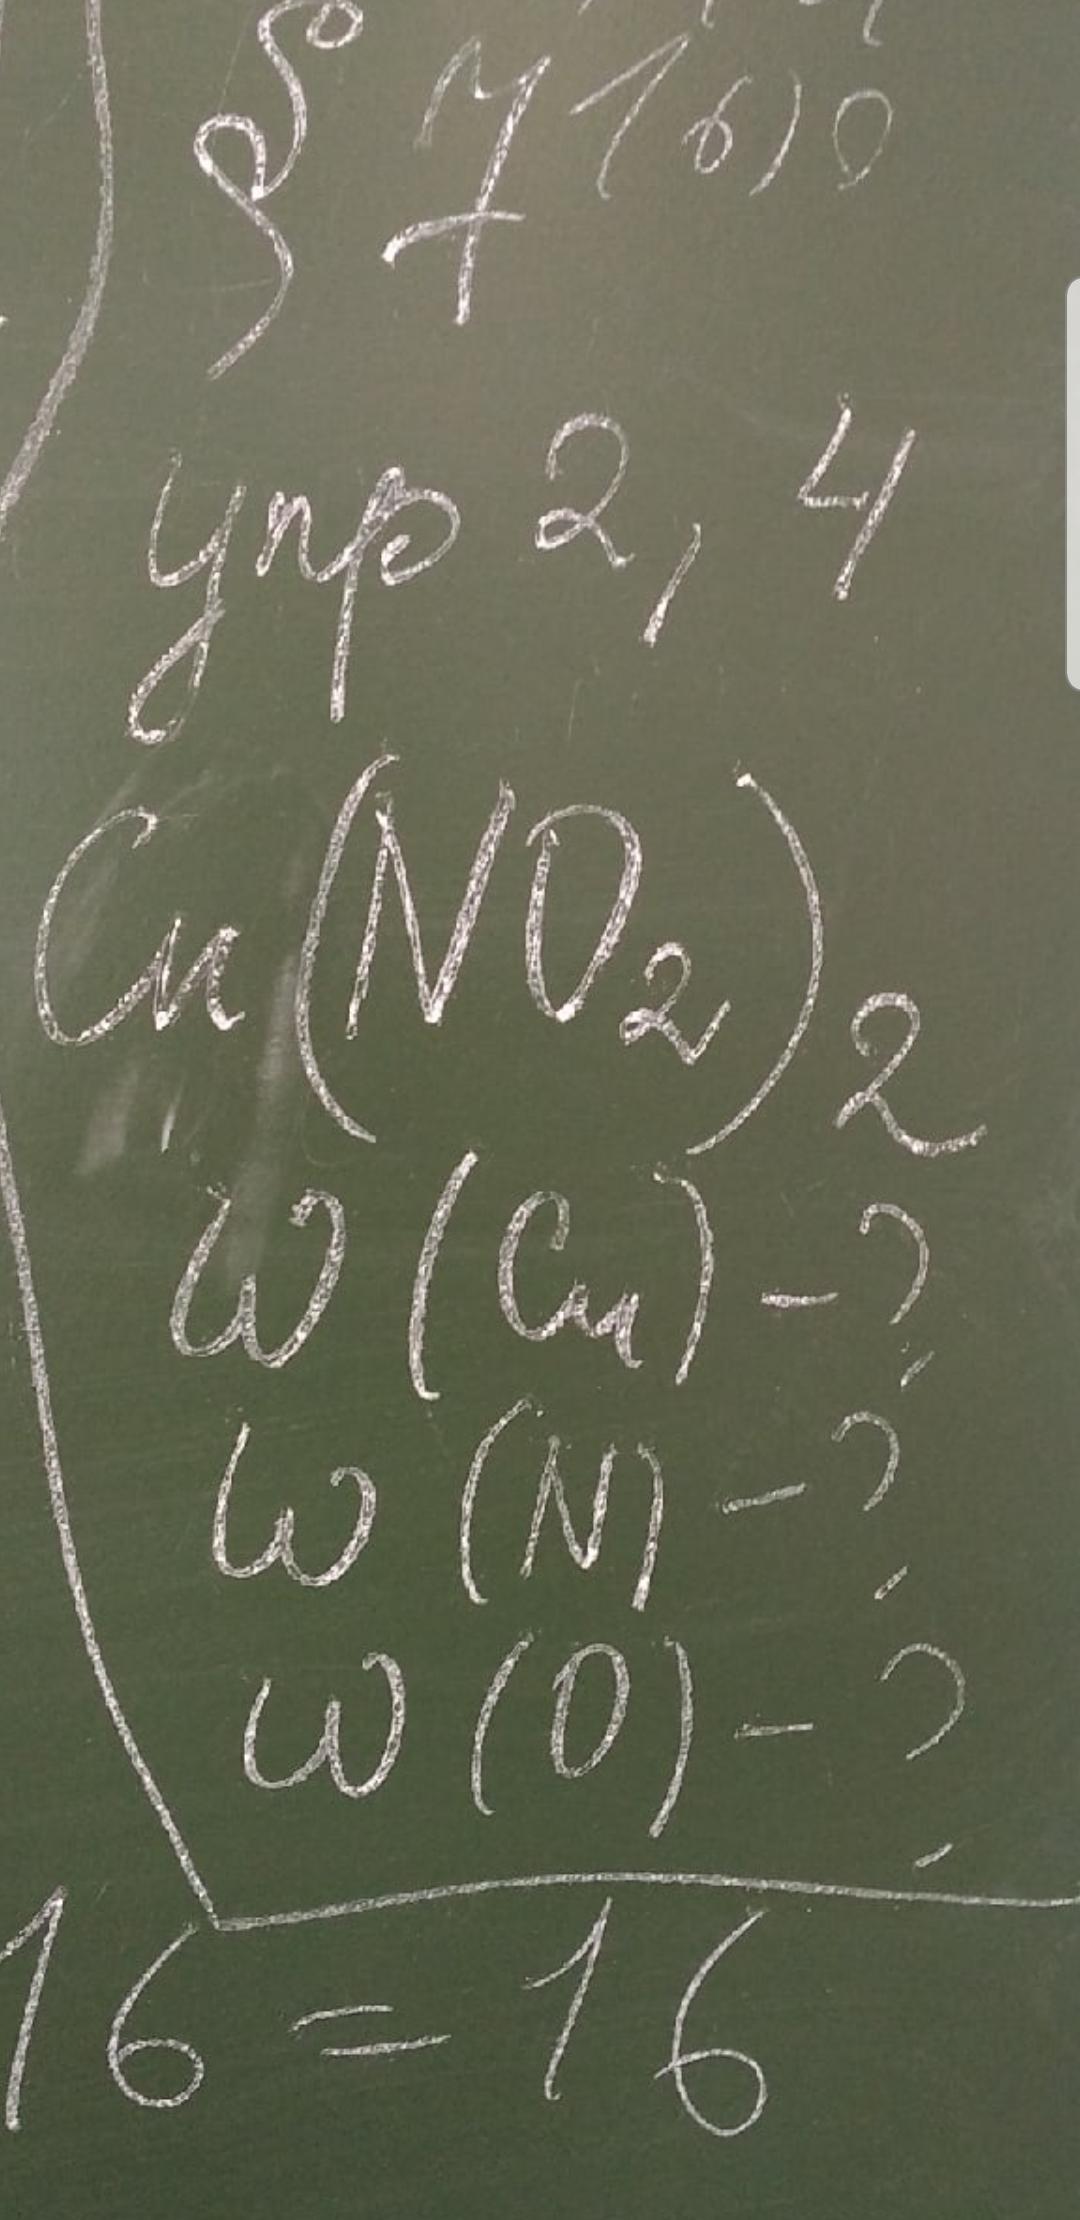 § 7 1 (б) 0
упр 2, 4
Cu(NO₂)₂
W (Cu) - ?
W (N) - ?
W (O) - ?
16 = 16